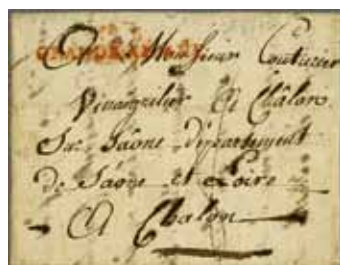 A Monsieur Couturier
Vinaigrilier A Châlon
Sur Sâone département
De Sâone et Loire
A Chalon